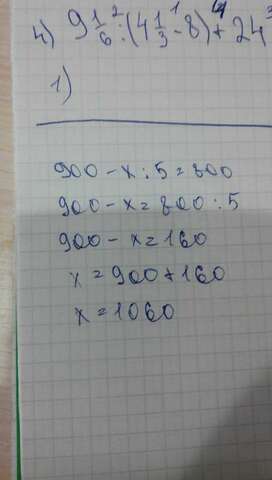 4) 9 1/6 :² (4 1/3 -¹ 8) +⁴ 24 ³
1)
900 - x : 5 = 800
900 - x = 800 : 5
900 - x = 160
x = 900 + 160
x = 1060